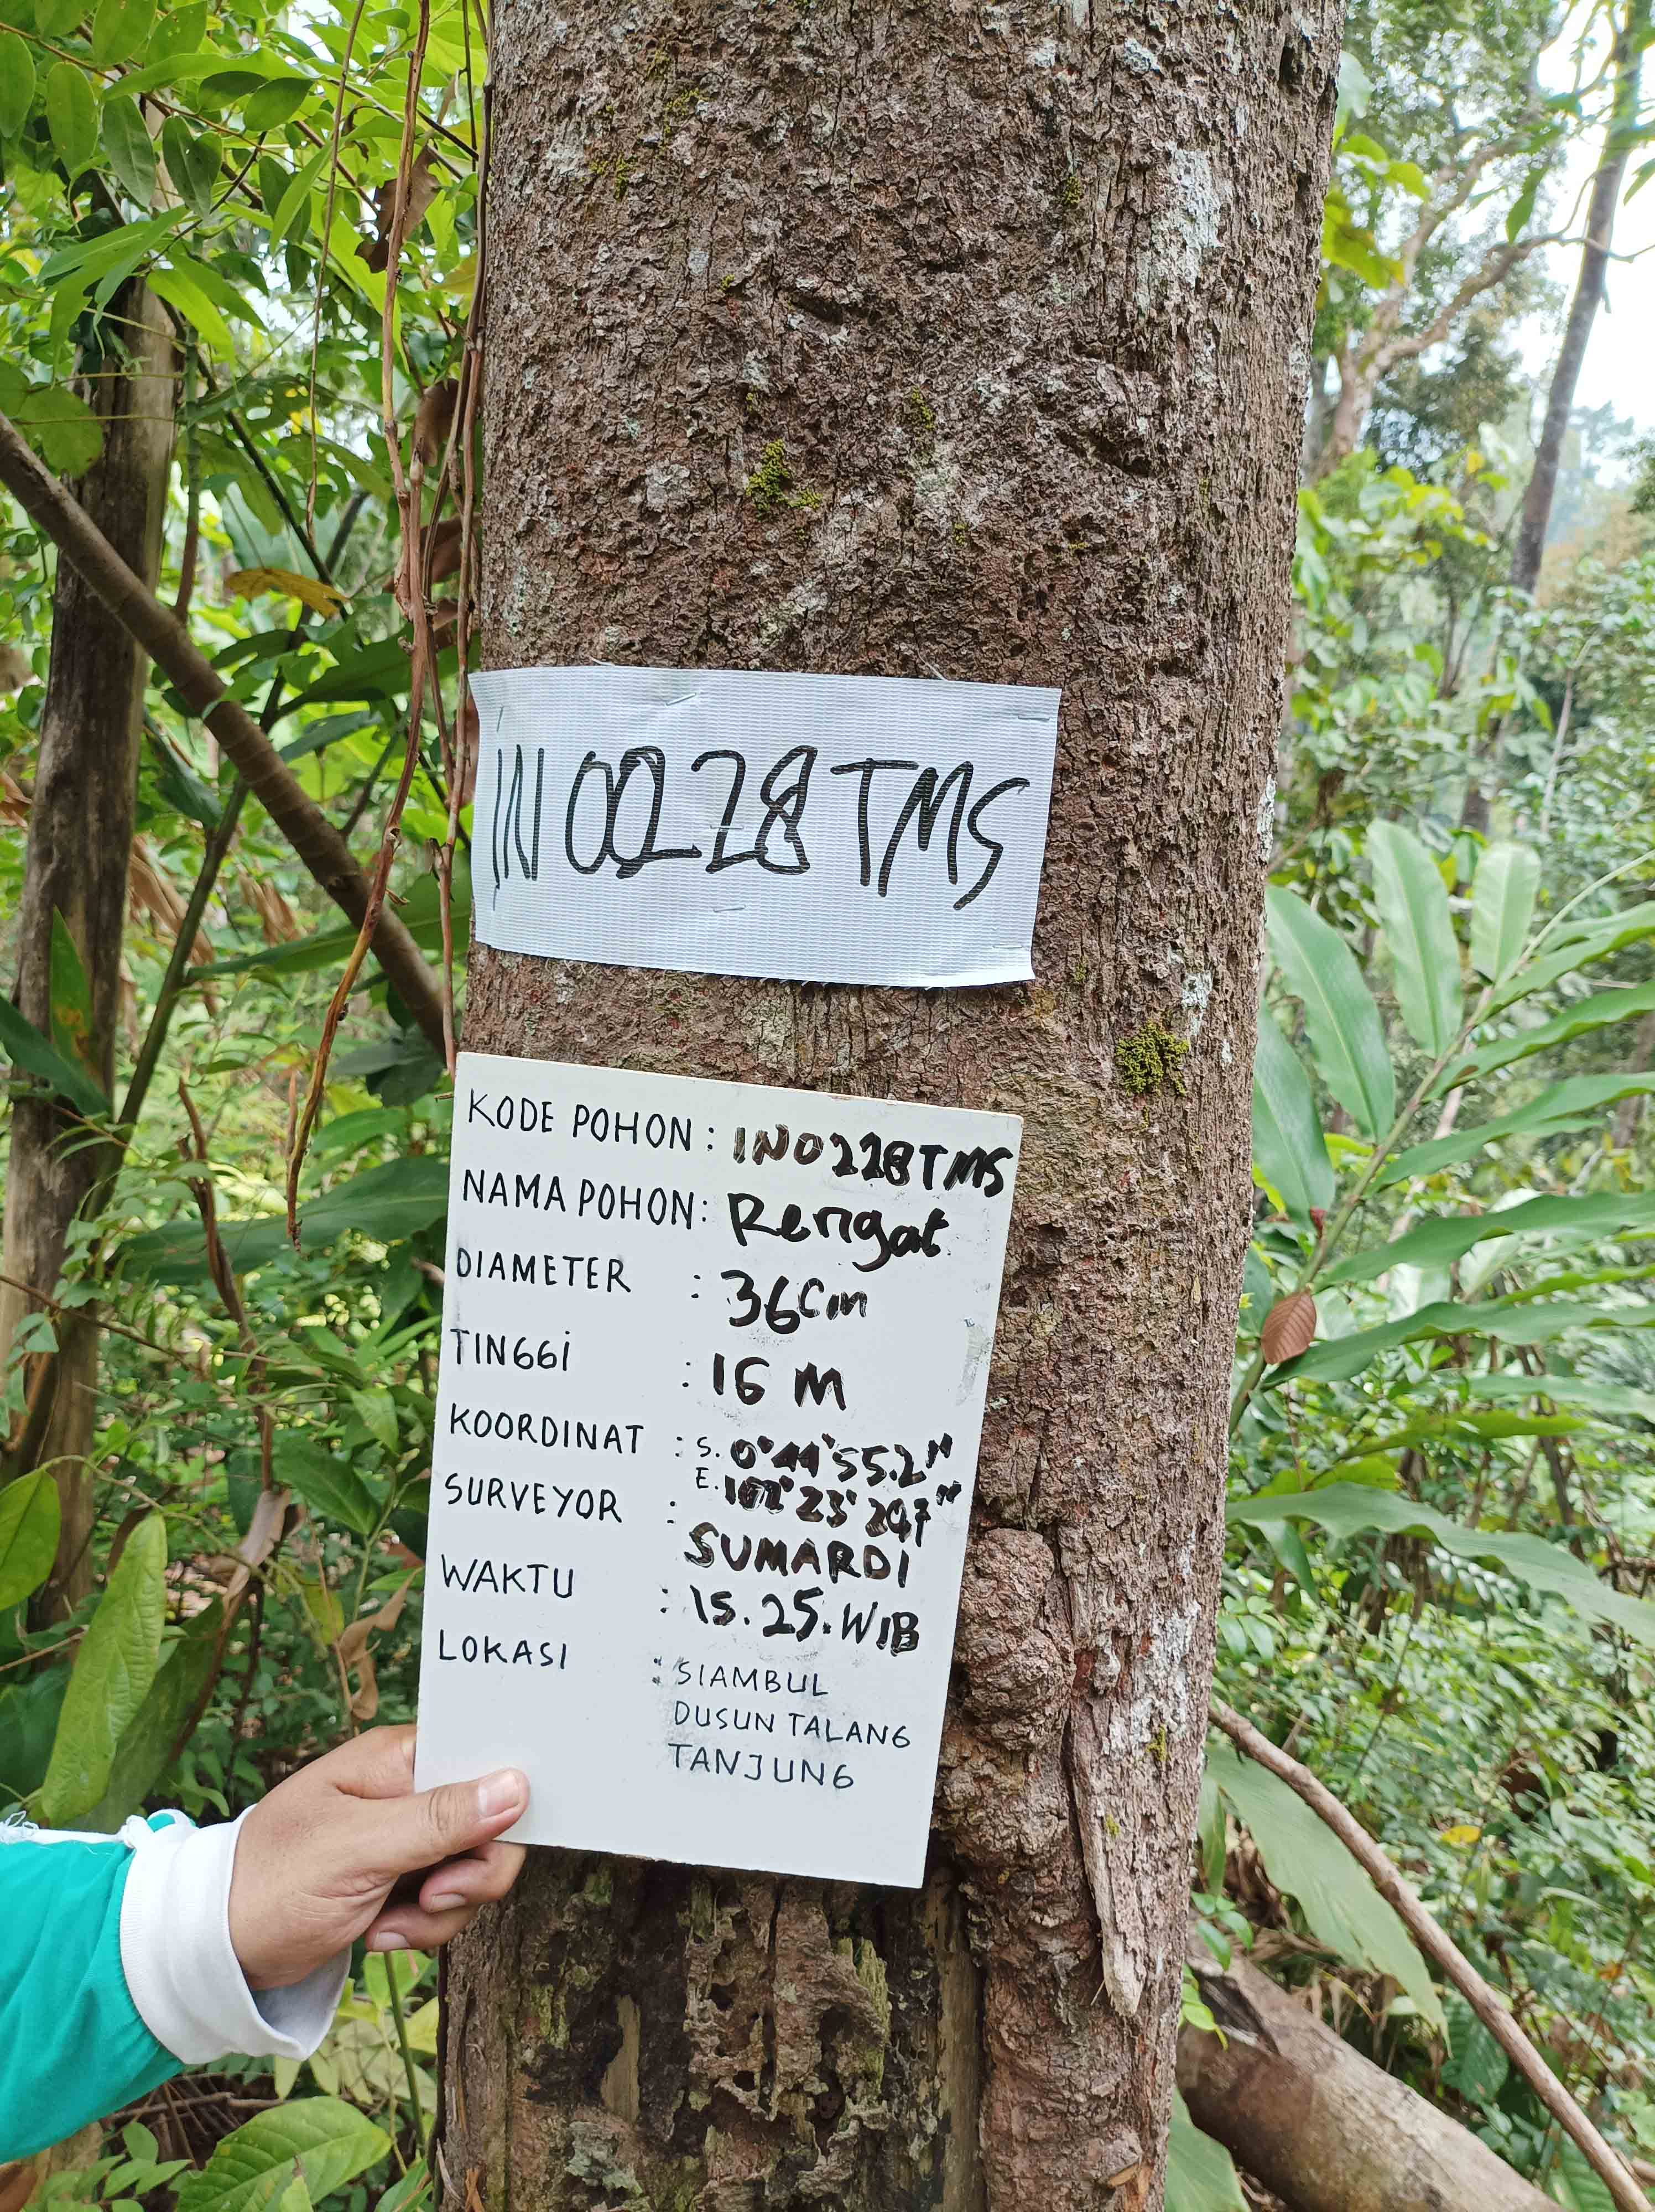 iN00228TMS
KODE POHON : IN0228TMS
NAMA POHON : Rengat
DIAMETER : 36cm
TINGGi : 16 M
KOORDINAT : S. 0°44'55.2"
E. 102°23'
SURVEYOR : SUMARDI
WAKTU : 15.25.WIB
LOKASI : SIAMBUL
DUSUN TALANG
TANJUNG